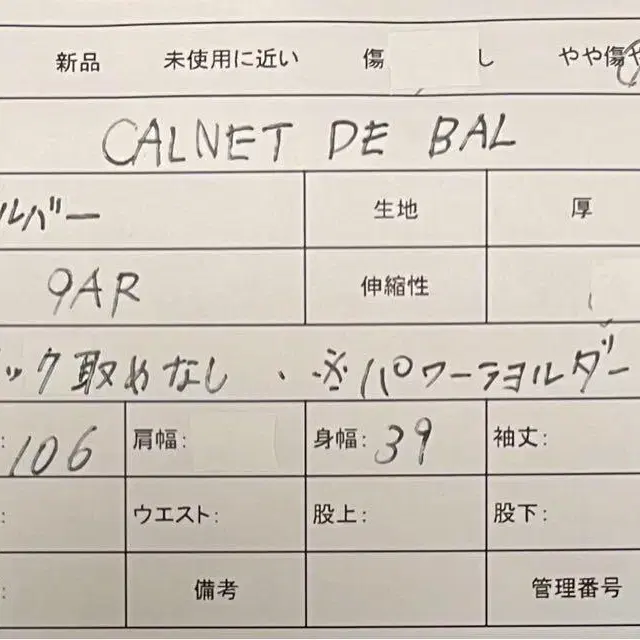 新品 未使用に近い 傷 し やや傷や
CALNET DE BAL
ルバー 生地 厚
9AR 伸縮性
ック取めなし ・ ※パワーショルダー
: 106 肩幅: 身幅: 39 袖丈:
: ウエスト: 股上: 股下:
: 備考 管理番号